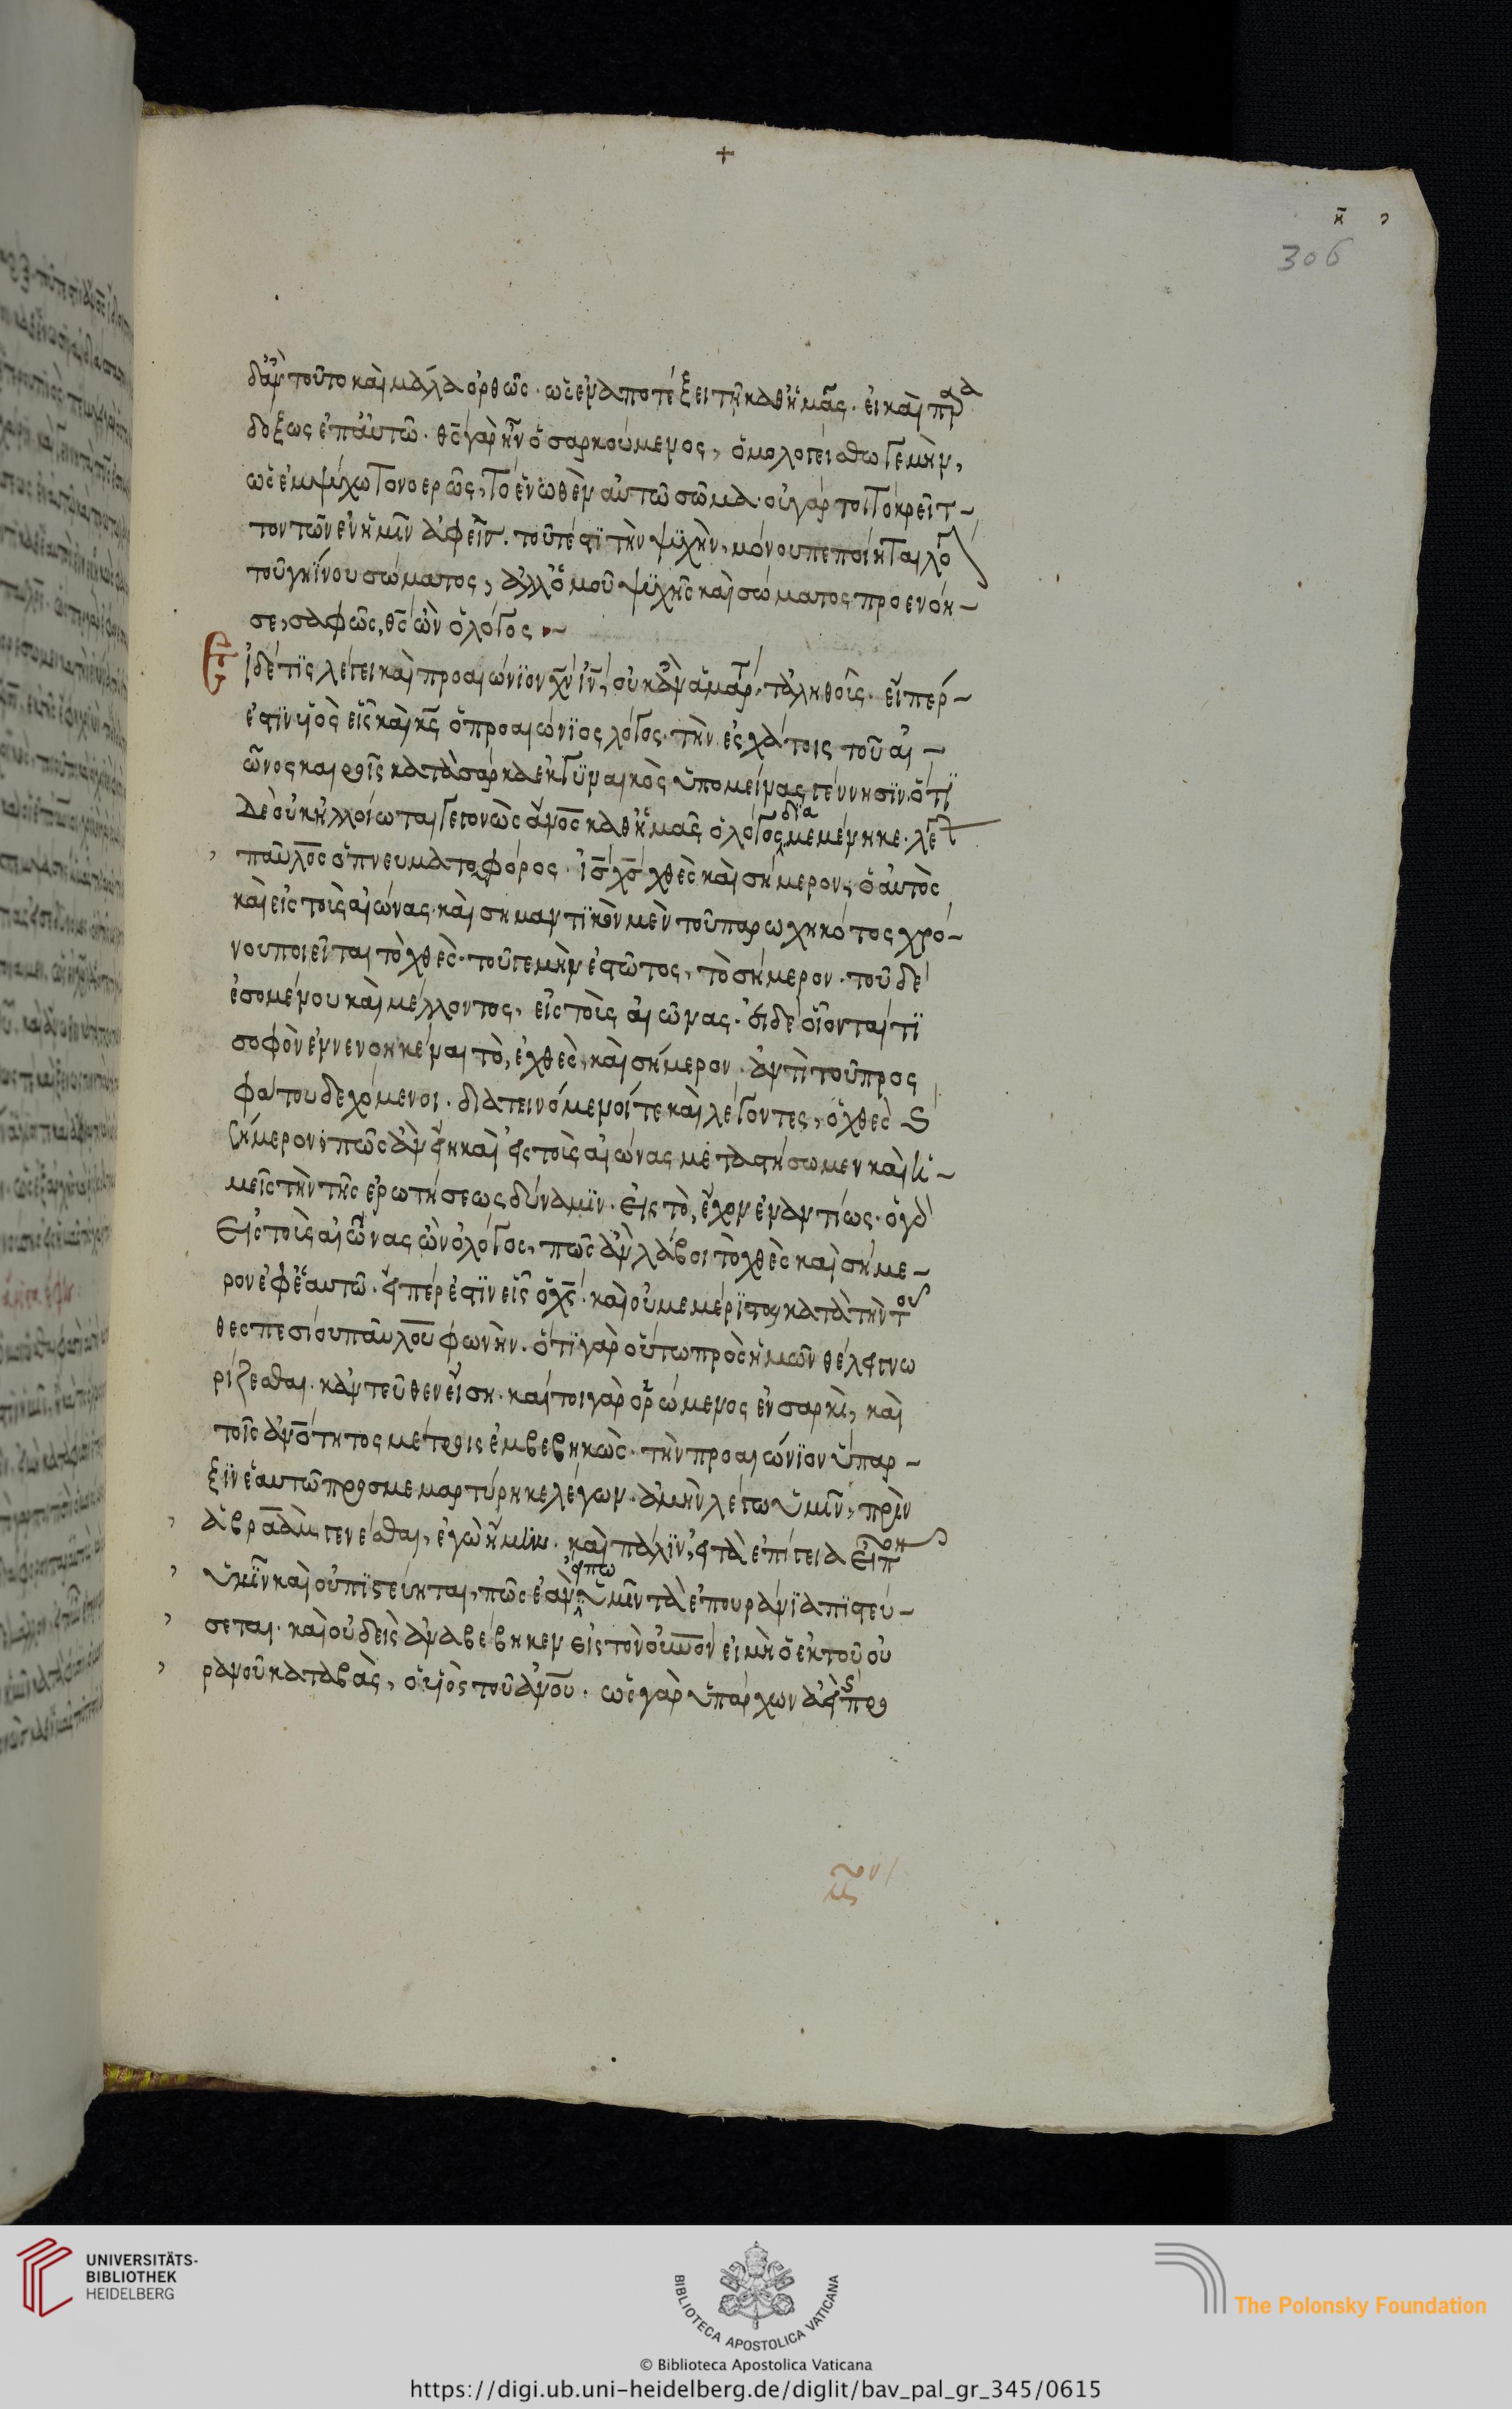 +
κ̄
306
δ' ἂν τοῦτο καὶ μάλα ὀρθῶς. ὡς ἐν ἀποτέξει τῇ καθ' ἡμᾶς. εἰ καὶ παρα
δόξως ἐπ' αὐτῶ. θς γὰρ ἦν ὁ σαρκούμενος, ὁμολογείσθω γε μὴν,
ὡς ἐμψύχωτο νοερῶς, τὸ ἑνωθὲν αὐτῶ σῶμα. οὐ γάρ τοι τὸ κρεῖτ-
τον τῶν ἐν ἡμῖν ἀφεὶς. τουτέστι τὴν ψυχὴν, μόνου πεποίηται λό
τοῦ γηΐνου σώματος, ἀλλ' ὁμοῦ ψυχῆς καὶ σώματος προενόη-
σε, σαφῶς, θς ὢν ὁ λόγος
Εἰ δέ τις λέγει καὶ προαιώνιον χν ιν, οὐκ ἂν ἁμάρτ τἀληθοῦς. εἴπερ-
ἐστὶν υἱὸς εἷς καὶ κς ὁ προαιώνιος λόγος. τὴν ἐσχάτοις τοῦ αἰ-
ῶνος καιροῖς κατὰ σάρκα ἐκ γυναικὸς ὑπομείνας γέννησιν. ὅτι
δὲ οὐκ ἠλλοίωται γεγονὼς ἄνος καθ' ἡμᾶς ὁ λόγος διαμεμένηκε. λέγ
παῦλος ὁ πνευματοφόρος. ις χς χθὲς καὶ σήμερον, ὁ αὐτὸς
καὶ εἰς τοὺς αἰώνας. καὶ σημαντικὸν μὲν τοῦ παρωχηκότος χρό-
νου ποιεῖται τὸ χθὲς. τοῦ γε μὴν ἐστῶτος, τὸ σήμερον. τοῦ δὲ
ἐσομένου καὶ μέλλοντος, εἰς τοὺς αἰῶνας. οἱ δὲ οἴονταί τι
σοφὸν ἐννενοηκέναι τὸ, ἐχθὲς, καὶ σήμερον. ἀντὶ τοῦ προς
φάτου δεχόμενοι. διατεινόμενοί τε καὶ λέγοντες, ὁ χθὲς ϛ
σήμερον, πῶς ἂν εἴη καὶ εἰς τοὺς αἰώνας μεταστήσωμεν καὶ ἡ-
μεῖς τὴν τῆς ἐρωτήσεως δύναμιν. εἰς τὸ, ἔχον ἐναντίως. ὁ γὰρ
εἰς τοὺς αἰῶνας ὢν ὁ λόγος, πῶς ἂν λάβοι τὸ χθὲς καὶ σήμε-
ρον ἐφ' ἑαυτῶ. εἴπερ ἐστὶν εἷς ὁ χς. καὶ οὐ μεμέρισται κατὰ τὴν τοῦ
θεσπεσίου παύλου φωνὴν. ὅτι γὰρ οὕτω πρὸς ἡμῶν θέλει γνω
ρίζεσθαι. κἀντεῦθεν εἴση. καίτοι γὰρ ὁρώμενος ἐν σαρκὶ, καὶ
τοῖς ἀνότητος μέτροις ἐμβεβηκὼς. τὴν προαιώνιον ὕπαρ-
ξιν ἑαυτῶ προσμεμαρτύρηκε λέγων. ἀμὴν λέγω ὑμῖν, πρὶν
ἀβραὰμ γενέσθαι, ἐγὼ ἤμην. καὶ πάλιν, εἰ τὰ ἐπίγεια εἶπον
ὑμῖν καὶ οὐ πιστεύηται, πῶς ἐὰν εἴπω ὑμῖν τὰ ἐπουράνια πιστεύ-
σεται. καὶ οὐδεὶς ἀναβέβηκεν εἰς τὸν οὐνον εἰ μὴ ὁ ἐκ τοῦ οὐ
ρανοῦ καταβὰς, ὁ υἱὸς τοῦ ἀνου. ὡς γὰρ ὑπάρχων ἀεὶ ϛ προ
UNIVERSITÄTS-
BIBLIOTHEK
HEIDELBERG
BIBLIOTECA APOSTOLICA VATICANA
The Polonsky Foundation
© Biblioteca Apostolica Vaticana
https://digi.ub.uni-heidelberg.de/diglit/bav_pal_gr_345/0615